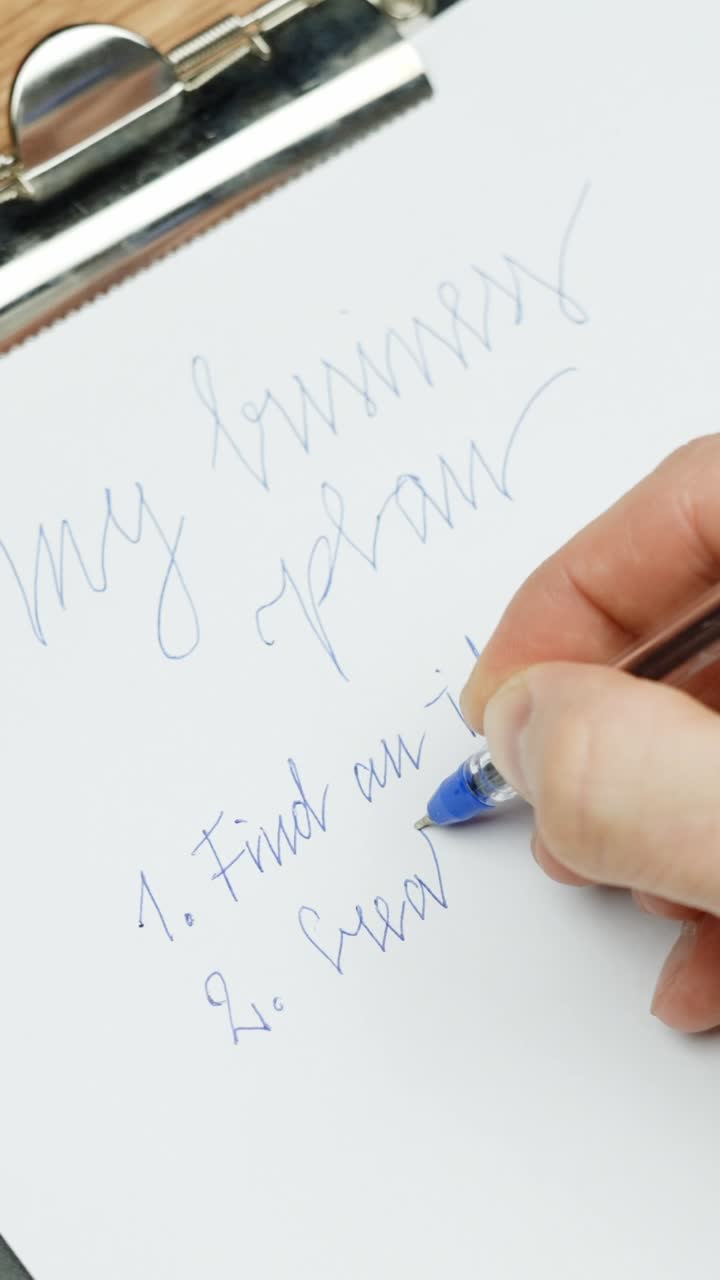 my business
plan
1. Find an i
2. Crea